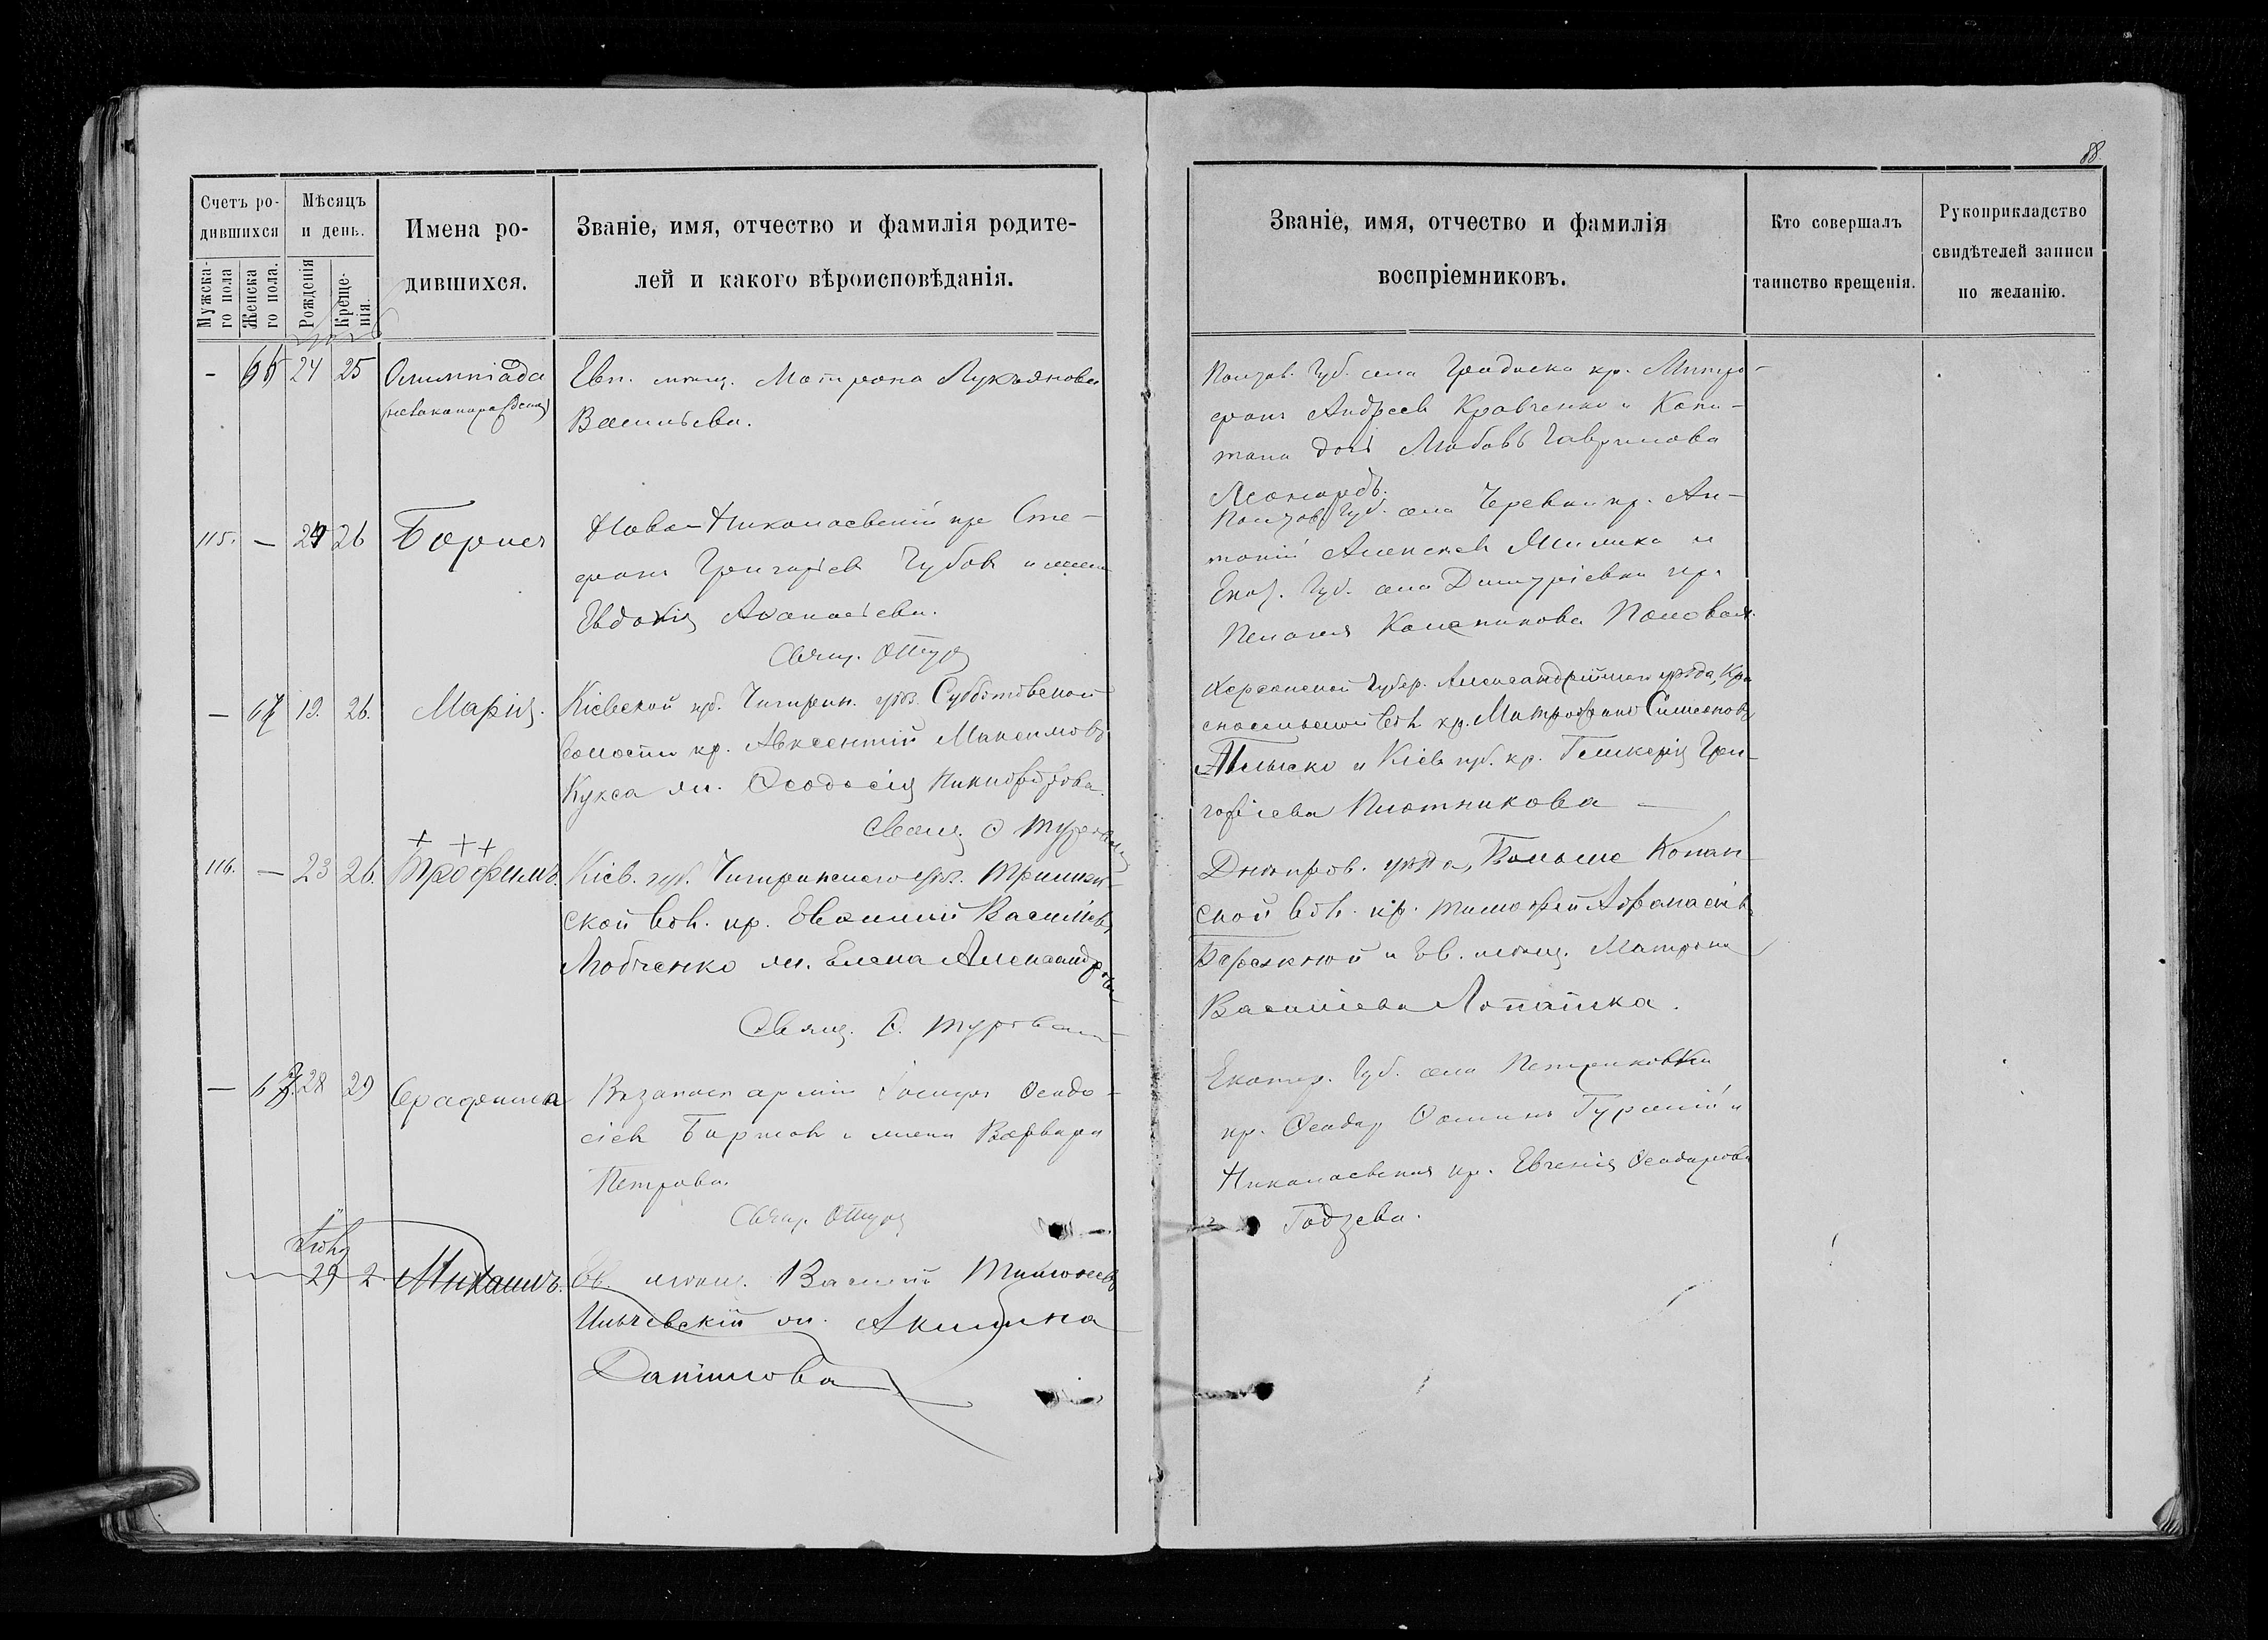 88.
Счетъ ро-
дившихся
Мужска-
го пола
Женска
го пола.
Мѣсяцъ
и день.
Рожденія
Креще-
нія.
Имена ро-
дившихся.
Званіе, имя, отчество и фамилія родите-
лей и какого вѣроисповѣданія.
Званіе, имя, отчество и фамилія
воспріемниковъ.
Кто совершалъ
таинство крещенія.
Рукоприкладство
свидѣтелей записи
по желанію.
- 24 25 Олимпіада
Евп. мѣщ. Матрона Лукьянова
Васильева.
Полтав. Губ. села Градиска кр. Митро-
фанъ Андреевъ Кравченко и Капи-
тана дочь Любовь Гаврилова
Леонардъ.
115. — 24 26 Борисъ
Ново-Николаевскій кр. Сте-
фанъ Григорьевъ Чубовъ и жена
Евдокія Аѳанасіева.
Свящ.
Полтав. Губ. села Черевки кр. Ан-
тоній Алексѣевъ и
Екат. Губ. села Димуріевки кр.
Пелагея
— 67 19. 26. Марія.
Кіевской губ. Чигирин. уѣз. Субботовской
волости кр. Авксентій Максимовъ
Кукса жи. Ѳеодосія Никифорова.
Свящ.
Херсонской Губер. Александрійскаго уѣзда, Кра
сносельской вол. кр. Митрофанъ Симеоновъ
и Кіев. губ. кр. Гликерія Гри-
горіева Плотникова —
116. — 23 26. Трофимъ.
Кіев. губ. Чигиринскаго уѣз.
ской вол. кр. Евфимій Васильевъ
Любченко жи. Елена Александрова
Свящ.
Днѣпров. уѣзда, Больше Копан-
ской вол. кр. Тимофей Аѳанасіевъ
Бережной и Ев. мѣщ. Матрона
Василіева Лопатька.
— 67 28 29 Серафима
Взапасѣ арміи Ѳеодо-
сіевъ и жена Варвара
Петрова.
Свящ.
Екатер. Губ. села Петриковки
кр. Ѳеодор и
Николаевская кр. Евгенія Ѳеодорова
Годзева.
29 2. Михаилъ.
Ев. мѣщ. Василій Тимоѳеевъ
Ильчевскій жи. Акилина
Даніилова